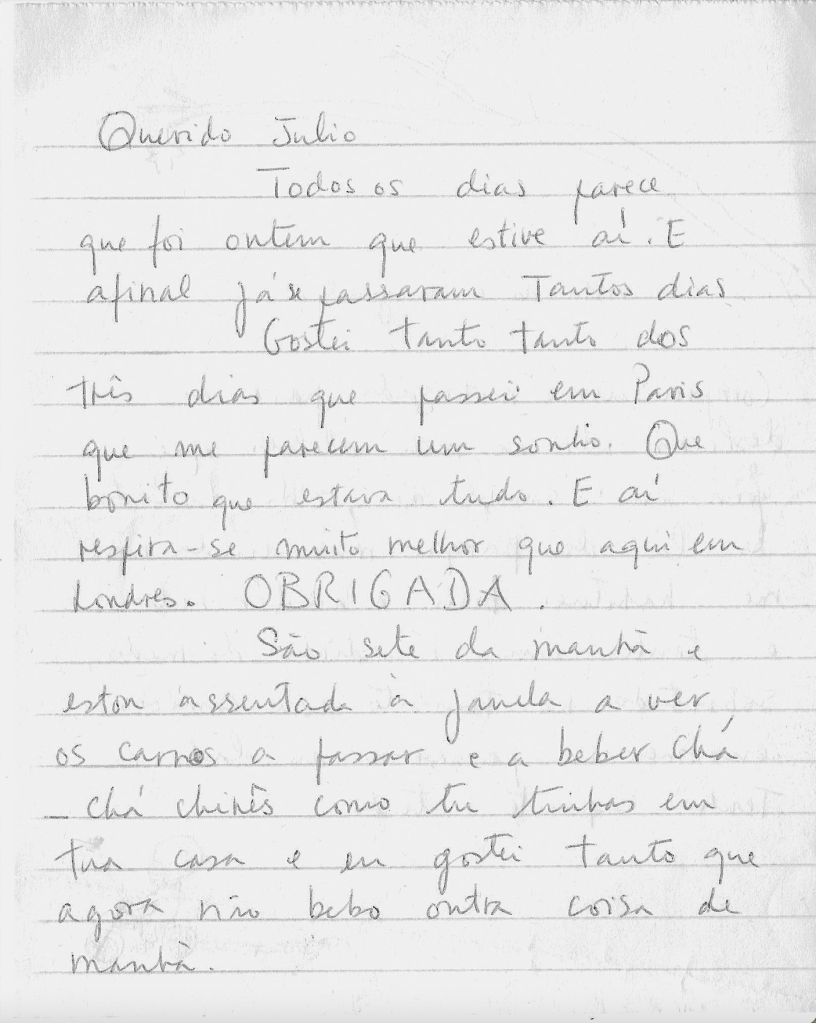 Querido Julio
Todos os dias parece
que foi ontem que estive aí. E
afinal já se passaram Tantos dias
Gostei tanto tanto dos
três dias que passei em Paris
que me parecem um sonho. Que
bonito que estava tudo. E aí
respira-se muito melhor que aqui em
Londres. OBRIGADA.
São sete da manhã e
estou assentada à janela a ver
os carros a passar e a beber chá
– chá chinês como tu tinhas em
tua casa e eu gostei tanto que
agora não bebo outra coisa de
manhã.